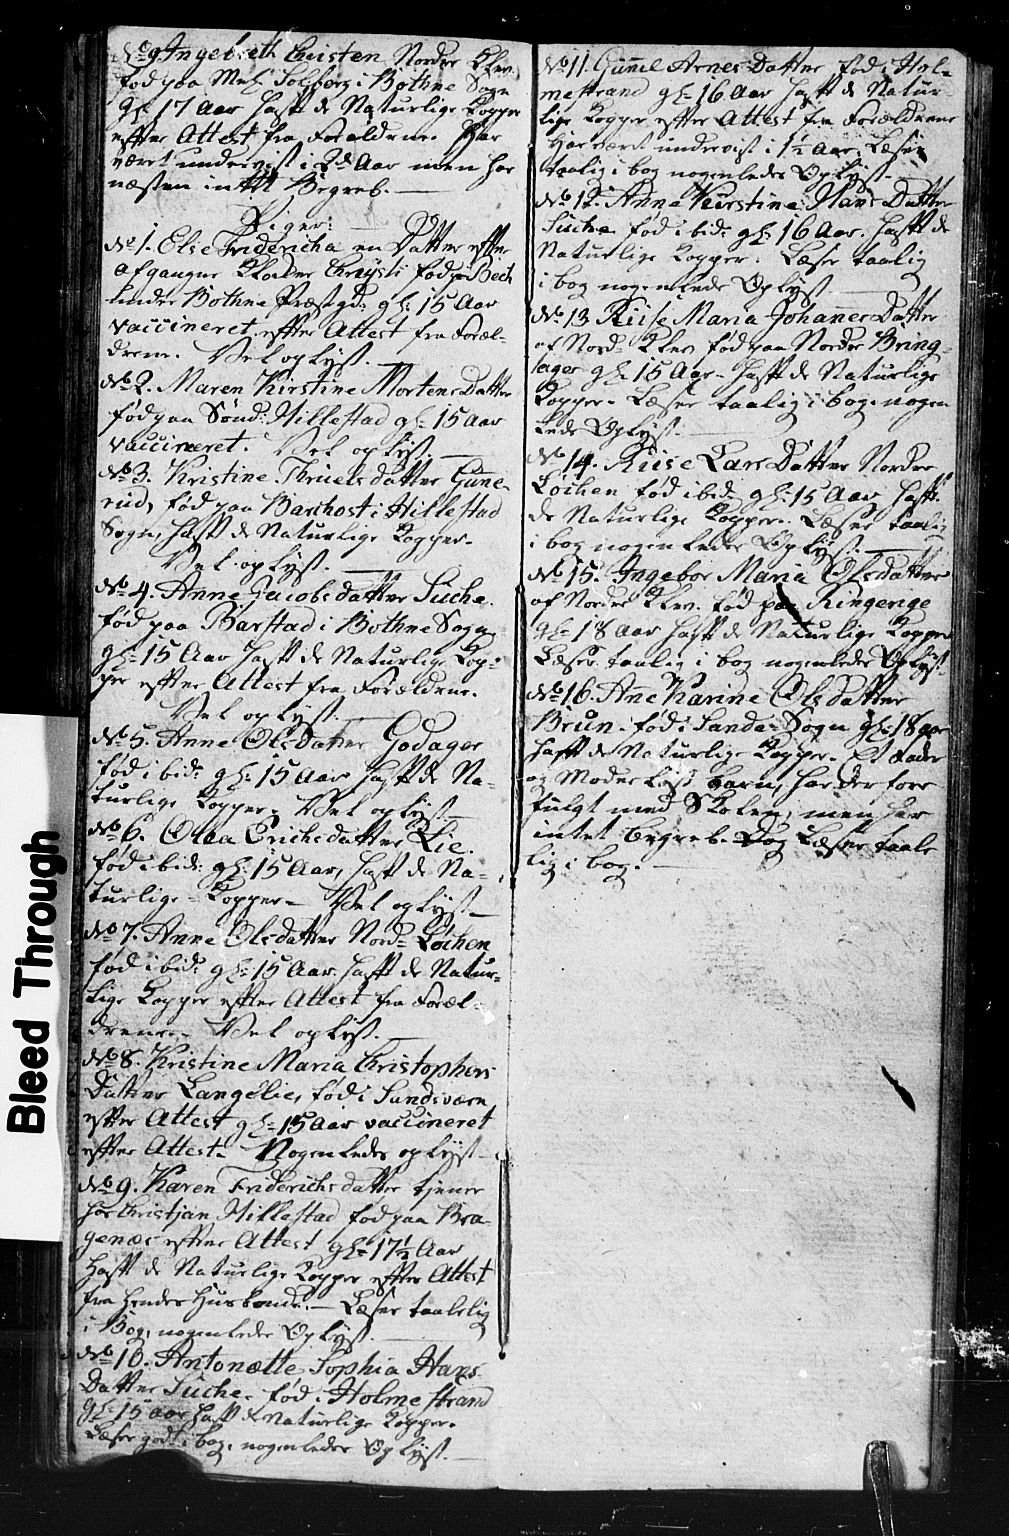 No 9 Angebreth Christen Nordre Klev
fød paa Mel. Solberg i Bothne Sogn
gl. 17 Aar haft de Naturlige Kopper
efter Attest fra Forældrene. Har
været undervist i 2de Aar men har
næsten intet Begreb.
Piger:
No 1. Else Friderica en Datter efter
afgangne Klokker Chrysti fød paa Bech
under Bothne Præstgd: gl: 15 Aar
vaccineret efter Attest fra Foræl-
drene. Vel oplyst.
No 2. Maren Kirstine Mortens Datter
fød paa Sønd: Hillestad gl: 15 Aar
vaccineret. Vel oplyst.
No 3. Kristine Thruelsdatter Gune-
rud, fød paa Barthost i Hillestad
Sogn, haft de Naturlige Kopper.
Vel oplyst.
No 4. Anne Jacobsdatter Suche.
fød paa Barstad i Bothne Sogn
gl: 15 Aar haft de Naturlige Kop-
per efter Attest fra Forældrene.
Vel oplyst.
No 5. Anne Olsdatter Godager
fød ibid: gl: 15 Aar haft de Na-
turlige Kopper. Vel oplyst
No 6. Olea Erichsdatter Lie.
fød ibid: gl: 15 Aar, haft de Na-
turlige Kopper. Vel oplyst
No 7. Anne Olsdatter Nord= Løchen
fød ibid: gl: 15 Aar haft de Natur-
lige Kopper efter Attest fra Foræl-
drene. Vel oplyst.
No 8. Kristine Maria Christophers
Datter Langelie, fød i Sandsværn
efter Attest gl: 15 Aar vaccineret
efter Attest. Nogenledes oplyst
No 9. Karen Friderichsdatter tjener
hos Christjan Hillestad fød paa Bra-
genæs efter Attest gl: 17½ Aar
haft de Naturlige Kopper efter Attest
fra hendes Husbonde. Læser taalelig
i Bog, nogenledes Oplyst.
No 10. Antonætte Sophia Hans
Datter Suche. fød i Holmestrand
gl: 15 aar haft de Naturlige Kopper.
Læser godt i bog. nogenledes Oplyst.
No 11. Guñil Arnes Datter fød i Hol-
mestrand gl: 16 Aar haft de Natur-
lige Kopper efter Attest fra Forældrene
Har været undervist i 1½ Aar. Læser
taalig i bog nogenledes Oplyst.
No 12. Anna Kirstine Hans Datter
Suche fød ibid: gl: 16 Aar. haft de
Naturlige Kopper. Læser taalig
i bog nogenledes Oplyst.
No 13 Riise Maria Johanes Datter
af Nord: Klev fød paa Nordre Bring-
ager gl: 15 Aar. haft de Naturlige
Kopper. Læser taalig i bog. nogen
ledes Oplyst.
No 14. Riise Lars Datter Nordre
Løchen fød ibid: gl: 15 Aar haft
de Naturlige Kopper. Læser taalig
i bog nogenledes Oplyst.
No 15. Ingebor Maria Olsdatter
af Nordre Klev. fød paa Ringerige
gl: 18 Aar haft de Naturlige Kopper
Læser taalig i bog nogenledes Oplyst.
No 16. Añe Karine Olsdatter
Brun. fød i Sande Sogn gl: 18 aar
haft de Naturlige Kopper. Et Fader
og Moder løst barn, har derfore
fulgt med Skolen, men har
intet begreb. Dog læser taale
lig i bog.
Bleed Through